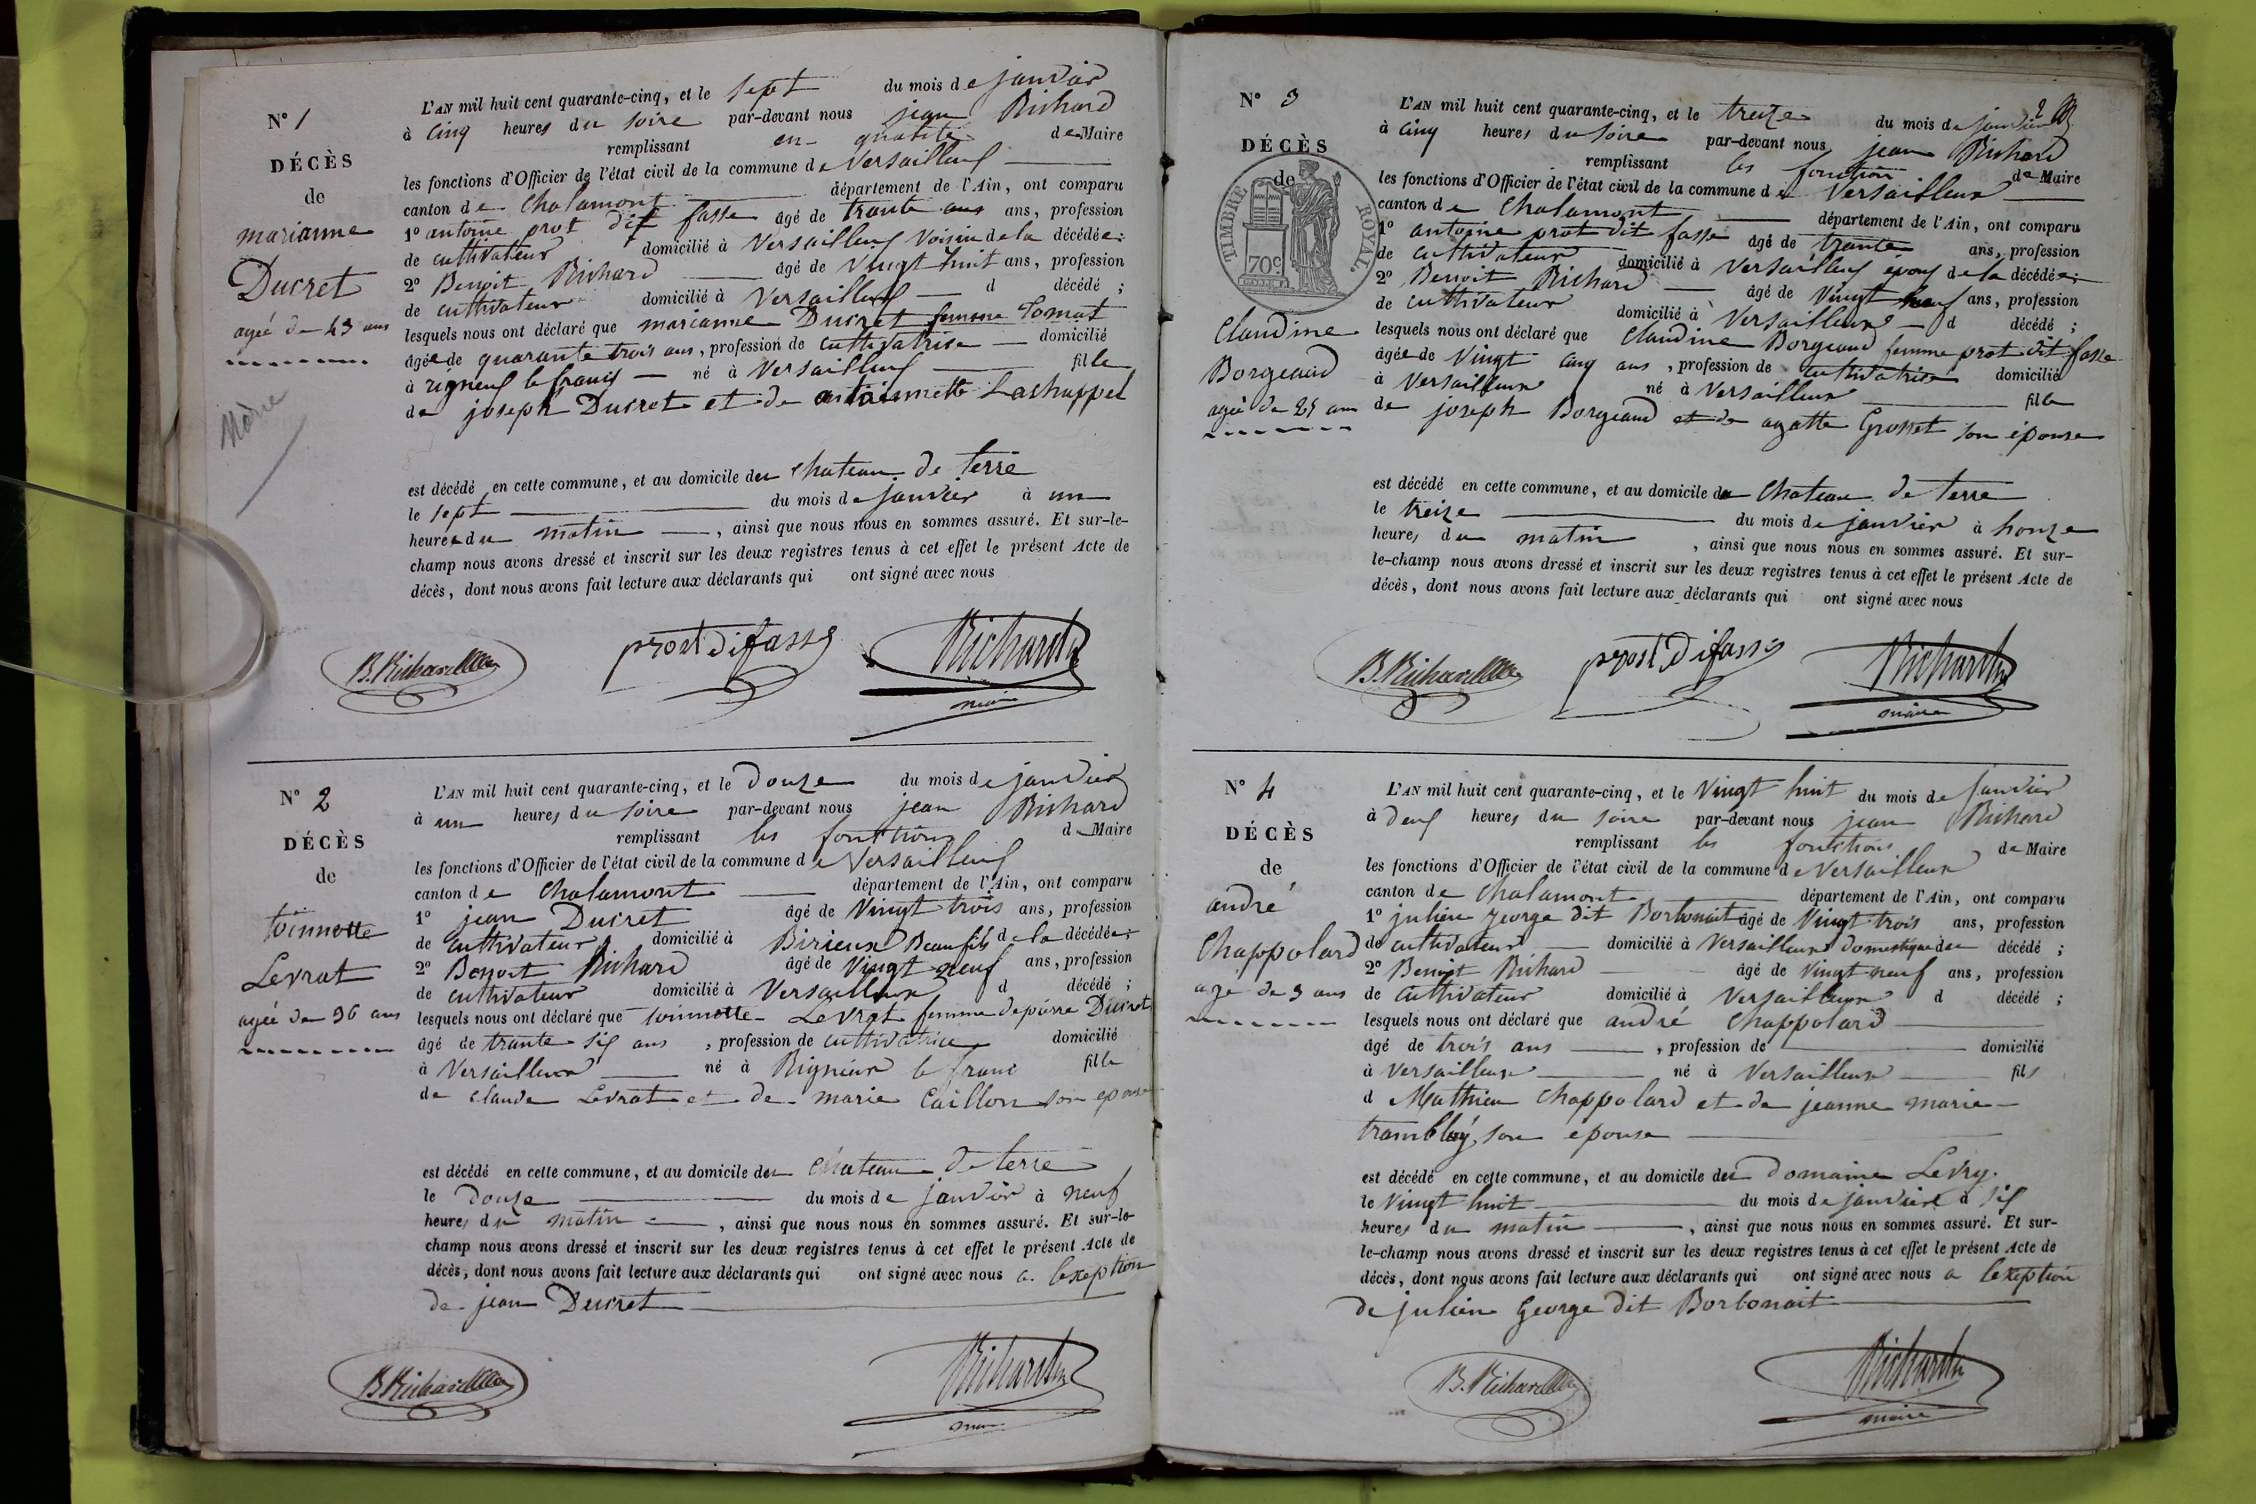 N° 1
DÉCÈS
de
marianne
Ducret
agée de 43 ans
L'AN mil huit cent quarante-cinq, et le sept du mois de janvier
à cinq heures du soire par-devant nous jean Richard
remplissant en qualité de Maire
les fonctions d'Officier de l'état civil de la commune de Versailleux
canton de Chalamont département de l'Ain, ont comparu
1° antoine prot dit fasse âgé de trante ans ans, profession
de cultivateur domicilié à Versailleux Voisin de la décédée;
2° Benoit Richard âgé de Vingt huit ans, profession
de cultivateur domicilié à Versailleux d décédé ;
lesquels nous ont déclaré que marianne Ducret femme Tomat
âgée de quarante trois ans, profession de cultivatrice domicilié
à rigneux le franis né à Versailleux fille
de joseph Ducret et de antoinette Lachappel
est décédé en cette commune, et au domicile du chateau de terre
le sept du mois de janvier à un
heure du matin, ainsi que nous nous en sommes assuré. Et sur-le-
champ nous avons dressé et inscrit sur les deux registres tenus à cet effet le présent Acte de
décès, dont nous avons fait lecture aux déclarants qui ont signé avec nous
B. Richard prost difasse Richard
maire
N° 2
DÉCÈS
de
toinnette
Levrat
agée de 36 ans
L'AN mil huit cent quarante-cinq, et le Douze du mois de janvier
à un heures du soire par-devant nous jean Richard
remplissant les fonctions de Maire
les fonctions d'Officier de l'état civil de la commune de Versailleux
canton de Chalamont département de l'Ain, ont comparu
1° jean Ducret âgé de Vingt trois ans, profession
de cultivateur domicilié à Birieux Beau fils de la décédée;
2° Benoit Richard âgé de Vingt neuf ans, profession
de cultivateur domicilié à Versailleux d décédé ;
lesquels nous ont déclaré que toinnette Levrat femme de pierre Ducret
âgé de trante six ans, profession de cultivatrice domicilié
à Versailleux né à Rignieux le franc fille
de claude Levrat et de marie Caillon son epouse
est décédé en cette commune, et au domicile du chateau de terre
le Douze du mois de janvier à neuf
heures du matin, ainsi que nous nous en sommes assuré. Et sur-le-
champ nous avons dressé et inscrit sur les deux registres tenus à cet effet le présent Acte de
décès, dont nous avons fait lecture aux déclarants qui ont signé avec nous a lexeption
de jean Ducret
B. Richard Richard
maire
N° 3
DÉCÈS
de
TIMBRE ROYAL
70c
Claudine
Borgeaud
agée de 25 ans
L'AN mil huit cent quarante-cinq, et le treize du mois de janvier
à cinq heures du soire par-devant nous jean Richard
remplissant les fonction de Maire
les fonctions d'Officier de l'état civil de la commune de Versailleux
canton de Chalamont département de l'Ain, ont comparu
1° antoine prot dit fasse âgé de trante ans, profession
de cultivateur domicilié à Versailleux époux de la décédée;
2° Benoit Richard âgé de Vingt neuf ans, profession
de cultivateur domicilié à Versailleux d décédé ;
lesquels nous ont déclaré que Claudine Borgeaud femme prost dit fasse
âgée de Vingt cinq ans, profession de cultivatrice domicilié
à Versailleux né à Versailleux fille
de joseph Borgeaud et de agatte Grosset son épouse
est décédé en cette commune, et au domicile du Chateau de terre
le treize du mois de janvier à honze
heures du matin, ainsi que nous nous en sommes assuré. Et sur-
le-champ nous avons dressé et inscrit sur les deux registres tenus à cet effet le présent Acte de
décès, dont nous avons fait lecture aux déclarants qui ont signé avec nous
B. Richard prost Difasse Richard
maire
N° 4
DÉCÈS
de
andré
Chappolard
age de 3 ans
L'AN mil huit cent quarante-cinq, et le Vingt huit du mois de janvier
à deux heures du soire par-devant nous jean Richard
remplissant les fonctions de Maire
les fonctions d'Officier de l'état civil de la commune de Versailleux
canton de Chalamont département de l'Ain, ont comparu
1° julien george dit Borbonait âgé de Vingt trois ans, profession
de cultivateur domicilié à Versailleux domestique du décédé ;
2° Benoit Richard âgé de Vingt neuf ans, profession
de cultivateur domicilié à Versailleux d décédé ;
lesquels nous ont déclaré que andré Chappolard
âgé de trois ans, profession de domicilié
à Versailleux né à Versailleux fils
d Mathieu Chappolard et de jeanne marie
trambley son epouse
est décédé en cette commune, et au domicile du Domaine Levry
le Vingt huit du mois de janvier à six
heures du matin, ainsi que nous nous en sommes assuré. Et sur-
le-champ nous avons dressé et inscrit sur les deux registres tenus à cet effet le présent Acte de
décès, dont nous avons fait lecture aux déclarants qui ont signé avec nous a lexeption
de julien George dit Borbonait
B. Richard Richard
maire